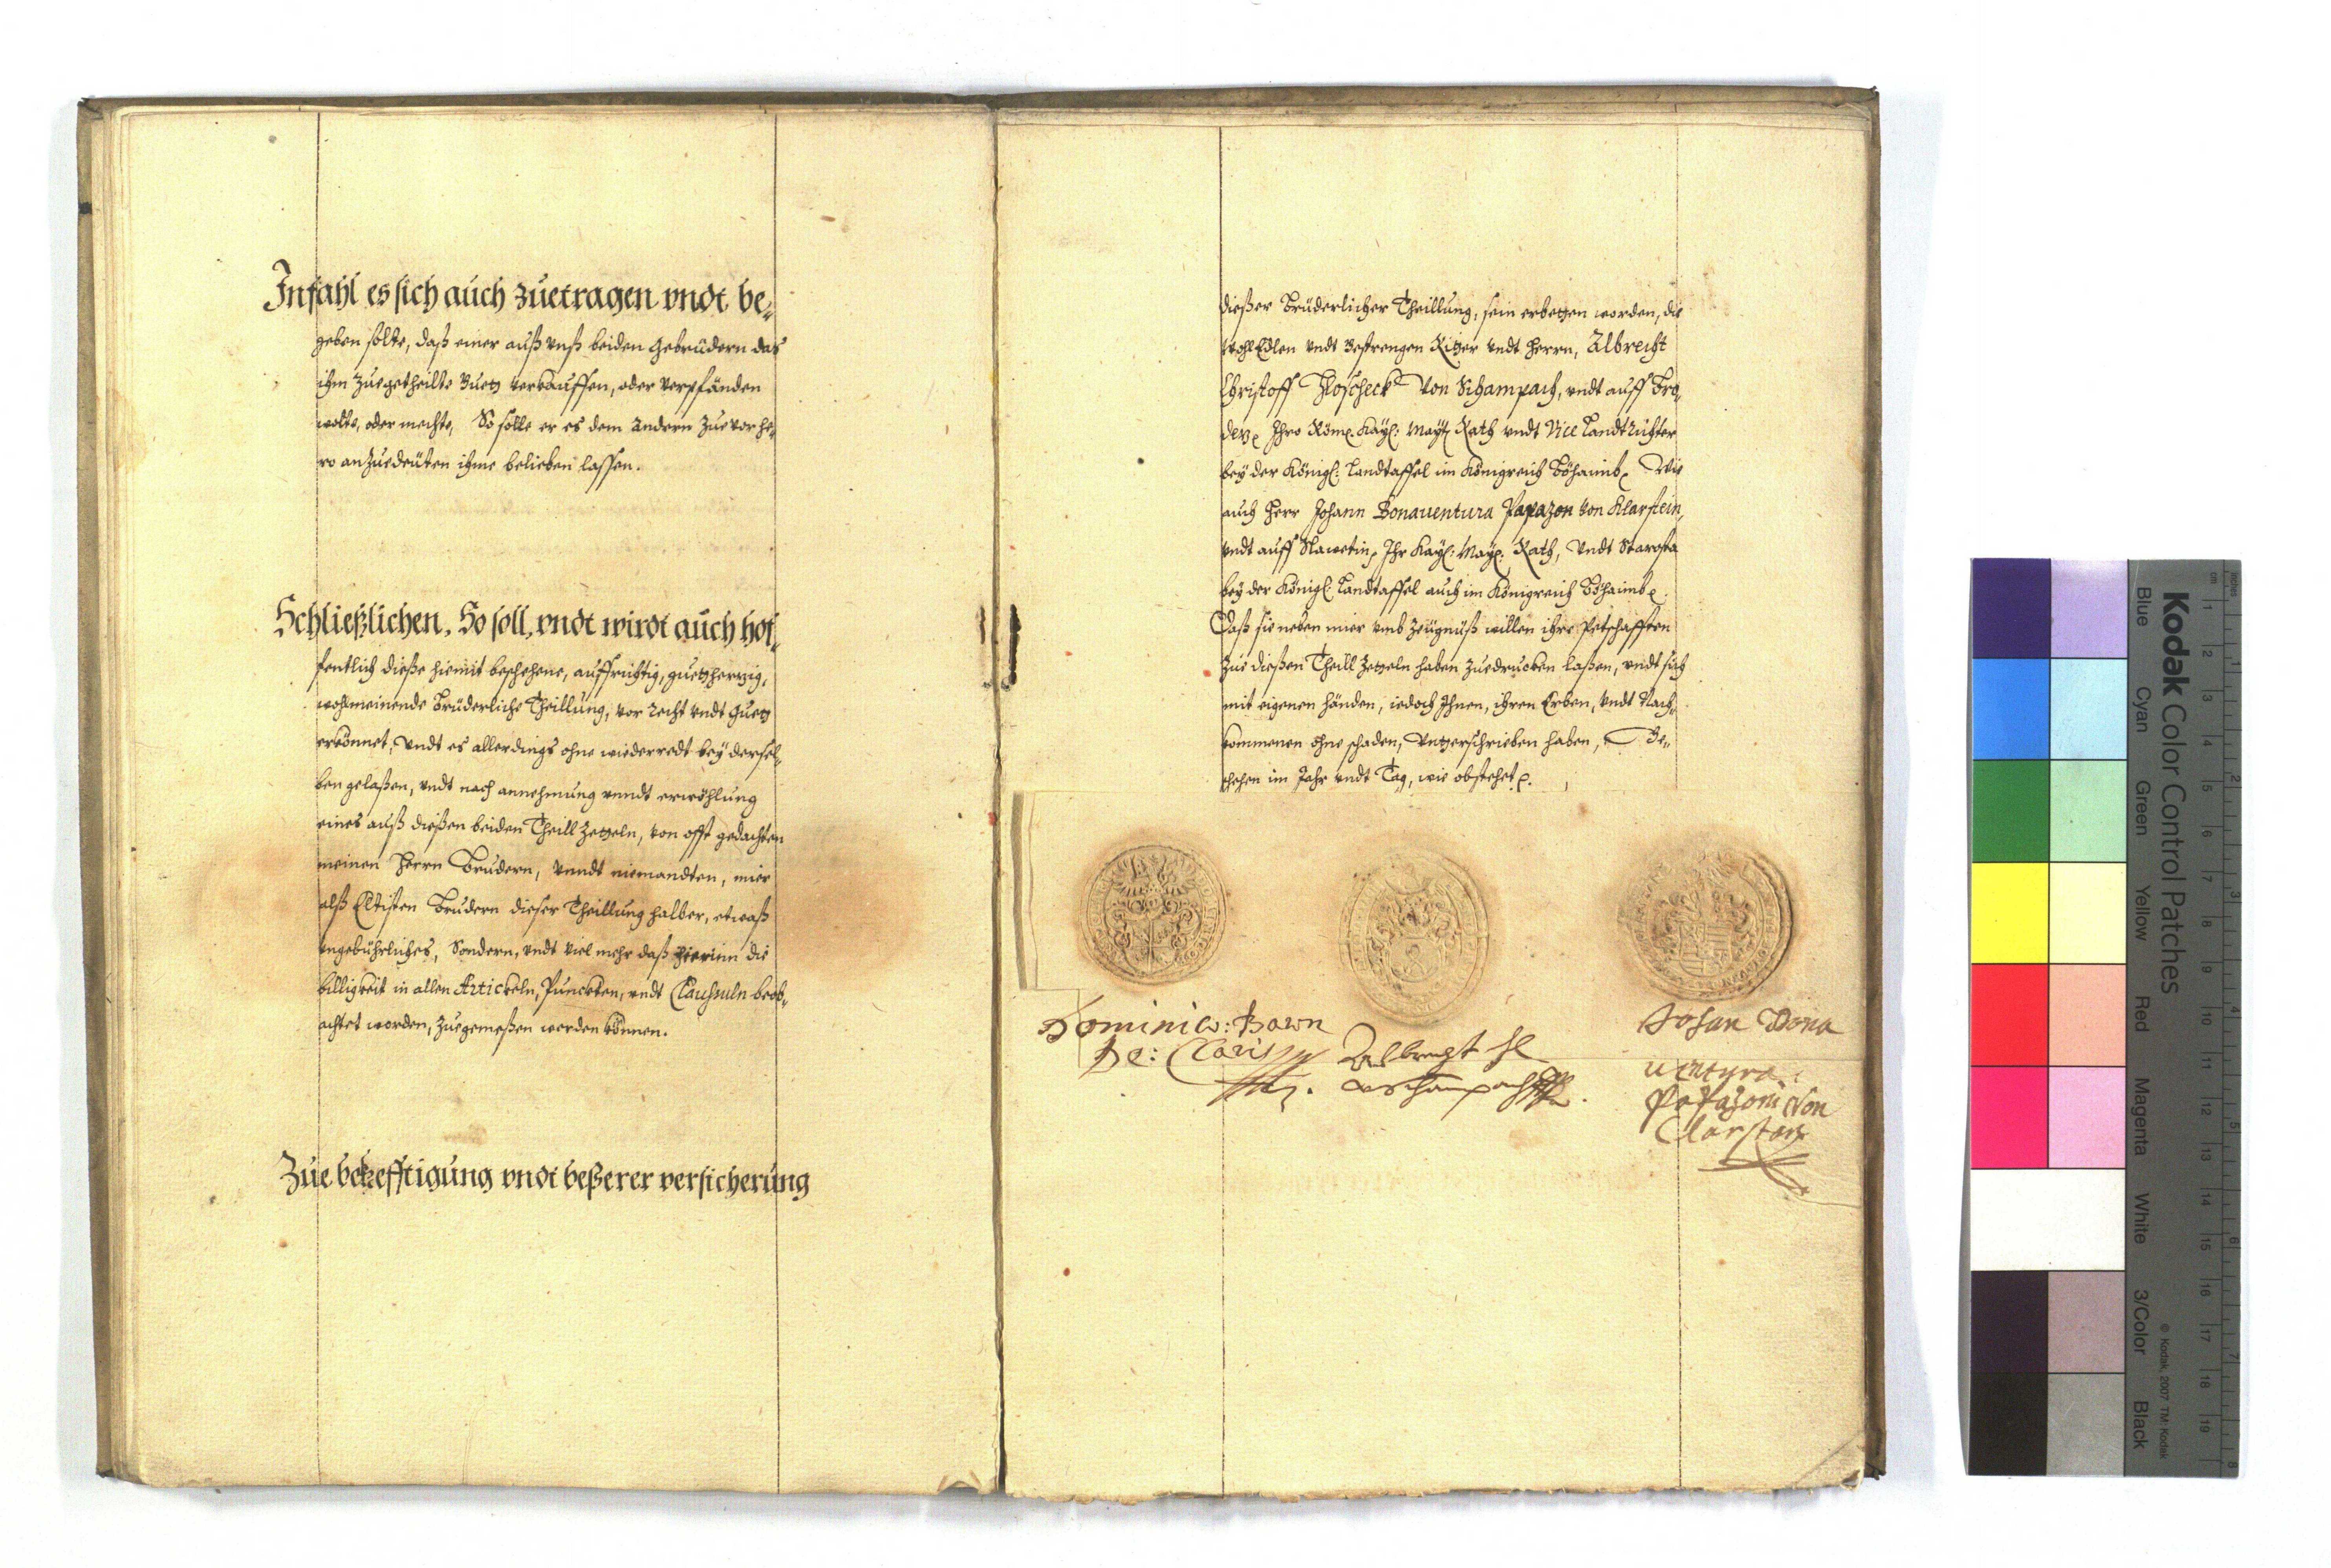 Infahl es sich auch zuetragen vndt be-
geben solte, daß einer auß vnß beiden Gebrüdern das
ihm zuegetheilte Guett verkauffen, oder verpfänden
wolte, oder mechte, So solle er es dem andern zuevor he-
ro anzuedeüten ihme belieben lassen.
Schließlichen, So soll, vndt wirdt auch hof-
fentlich dieße hiemit beschehene, auffrichtig, guetherzig,
wohlmeinende Brüderliche Theillung, vor recht vndt guett
erkönnet, vndt es allerdings ohne wiederredt bey dersel-
ben gelaßen, vndt nach annehmung vnndt erwöhlung
eines auß dießen beiden Theill Zetteln, von offt gedachten
meinen Herrn Brudern, vnndt niemandten, mier
alß Eltisten Brudern dieser Theillung halber, etwaß
vngebührliches, Sondern, vndt viel mehr daß hierinn die
billigkeit in allen Artickeln, Puncten, vndt Clausuln beob-
achtet worden, zuegemeßen werden können.
Zue bekrefftigung vndt beßerer versicherung
dießer Brüderlicher Theillung, sein erbetten worden, die
WohlEdlen vndt Gestrengen Ritter vndt Herrn, Albrecht
Christoff Hloscheck von Schampach, vndt auff Bro-
Ihro Röm. Kayl: Mayt Rath vndt Vice Landtrichter
bey der Königl: Landtaffel im Königreich Böhaimb. Wie
auch Herr Johann Bonauentura Papazon von Klarstein,
vndt auff Slawetin, Ihr Kayl: May: Rath, vndt Starosta
bey der Königl: Landtaffel auch im Königreich Böhaimb.
Daß sie neben mier vmb Zeügnüß willen ihre Petschafften
zue dießen Theill Zetteln haben zuedrucken laßen, vndt sich
mit eigenen händen, iedoch Ihnen, ihren Erben, vndt Nach-
kommenen ohne schaden, vnterschrieben haben, Ge-
schehen im Jahr vndt Tag, wie obstehet.
Dominico: Bawn
De: Claris
Albrecht Hl
v Schampach
Johan Bona
uentura
Papazoni Von
Clarstein
Kodak Color Control Patches
Blue Cyan Green Yellow Red Magenta White 3/Color Black
© Kodak, 2007 TM: Kodak
inches 1 2 3 4 5 6 7 8
cm 1 2 3 4 5 6 7 8 9 10 11 12 13 14 15 16 17 18 19